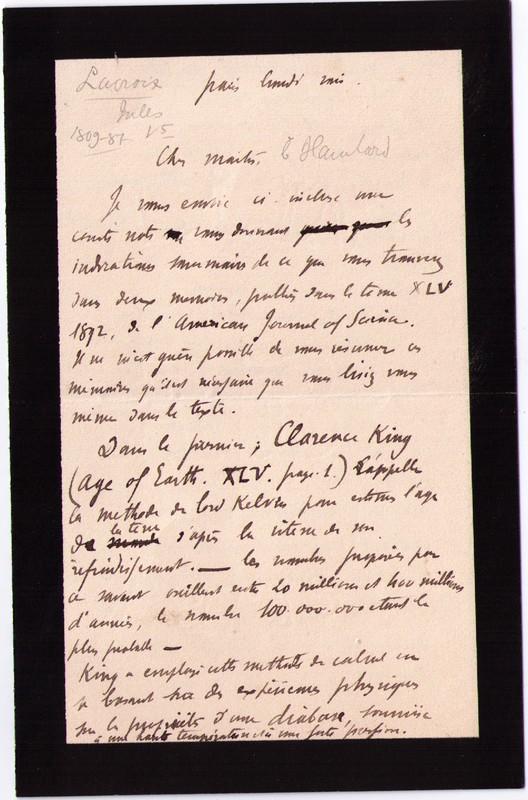 Lacroix
Jules
1809-87
Paris lundi
Cher maître,
Je vous envoie ci-incluse une
courte note vous donnant les
indications sommaires de ce que vous trouverez
dans deux memoires, publiés dans le tome XLV
1892, de l'American Journal of Science.
Il ne m'est guère possible de vous résumer ces
memoires qu'il est nécessaire que vous lisiez vous
même dans le texte.
Dans le premier, Clarence King
(Age of Earth. XLV. page 1.) rappelle
la methode de lord Kelvin pour estimer l'age
de la terre d'après la vitesse de son
refroidissement. — les nombres proposés par
ce savant oscillent entre 20 millions et 400 millions
d'années, le nombre 100.000.000 étant le
plus probable —
King a employé cette methode de calcul en
se basant sur des expériences physiques
sur les propriétés d'une diabase, soumise
à une haute température et à une forte pression.